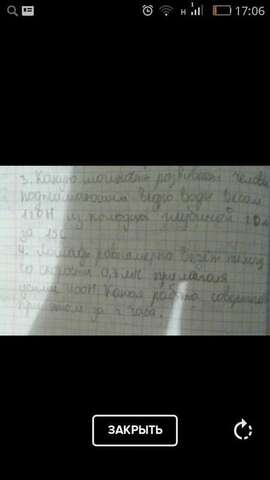 17:06
3. Какую мощность развивает челов
поднимающий ведро воды весом
120Н из колодца глубиной
за 15с
4. Лошадь равномерно везёт телегу
со скорость 0,8м/с прилагая
усилие 400Н. Какая работа
при этом за часа.
ЗАКРЫТЬ